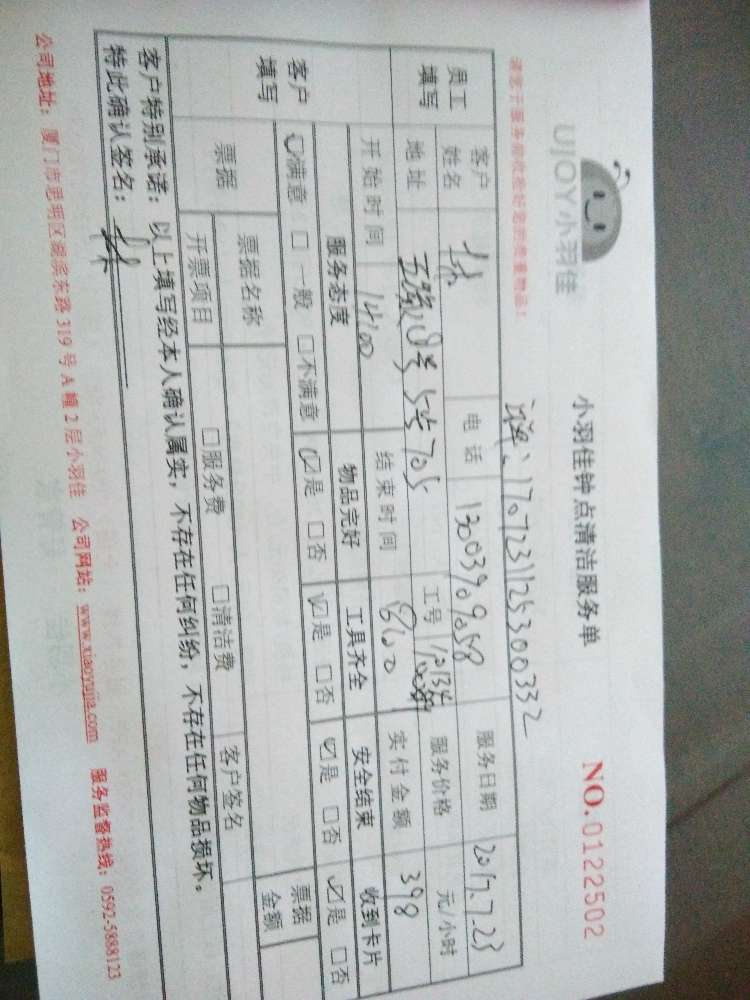 UJOY小羽佳
小羽佳钟点清洁服务单
NO.0122502
请您于服务前收拾好您的贵重物品!
170723112530033 2
员工填写
客户姓名 林 电话 13003909058 服务日期 2017.7.23
地址 5栋705 工号 服务价格 元/小时
开始时间 14:00 结束时间 实付金额 398
客户填写
服务态度 物品完好 工具齐全 安全结束 收到卡片
☑满意 □一般 □不满意 ☑是 □否 ☑是 □否 ☑是 □否 ☑是 □否
票据 票据名称 票据金额
开票项目 □服务费 □清洁费 客户签名
客户特别承诺:以上填写经本人确认属实,不存在任何纠纷,不存在任何物品损坏。
特此确认签名:林
公司地址:厦门市思明区湖滨东路319号A幢2层小羽佳 公司网站:www.xiaoyujia.com 服务监督热线:0592-5888123